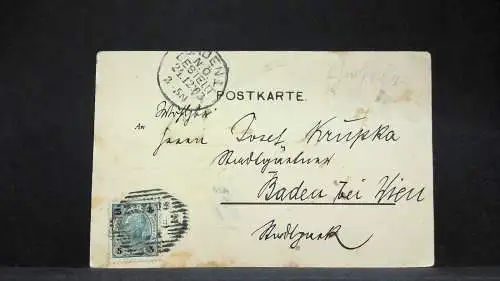 BADEN 1
N.Ö.
BESTELLT
POSTKARTE.
An
Herrn Josef Krupka
Stadtgärtner
Baden bei Wien
Stadtpark
5 5
5 5